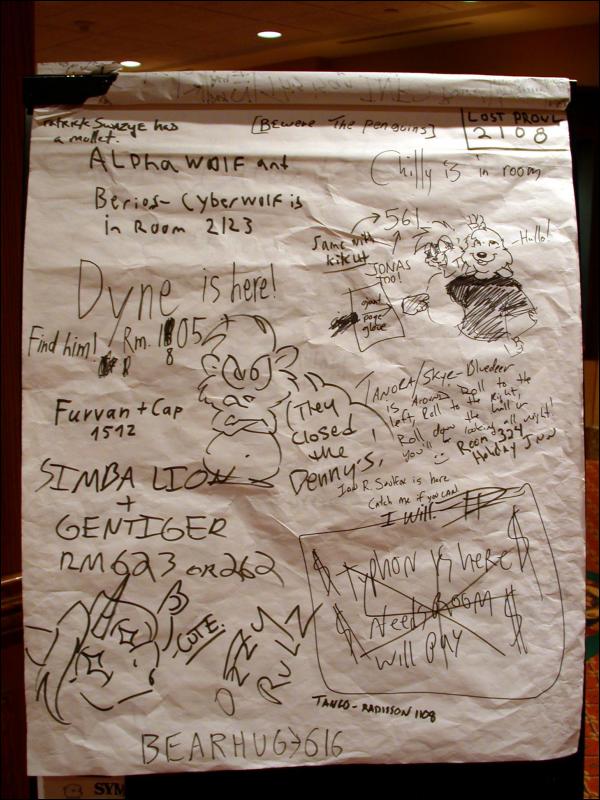 Patrick Swazye has
a mullet.
[BEWERE THE PENGUINS]
LOST PROWL
2108
ALPHA WOLF ant
Berios- Cyberwolf is
in Room 2123
Chilly is in room
561
Same with
kitcut
JONAS
TOO!
Hullo!
giant
page
glove
Dyne is here!
Find him! Rm. 1805
8
They
closed
the
Denny's!
TANORA/SKYE-Bluedeer
is Around. Roll to the
left, Roll to the Right,
Roll down the hall &
you'll looking all night!
Room 324
Holiday INN
Furvan + Cap
1512
Jon R. Saulfox is here
Catch me if you CAN
I will.
SIMBA LION
+
GENTIGER
RM 623 OR 262
$ Typhon is here $
Needs Room
$ Will pay $
CUTE.
OZZY
RULZ
TANGO - RADISSON 1108
BEARHUG→616
SYM